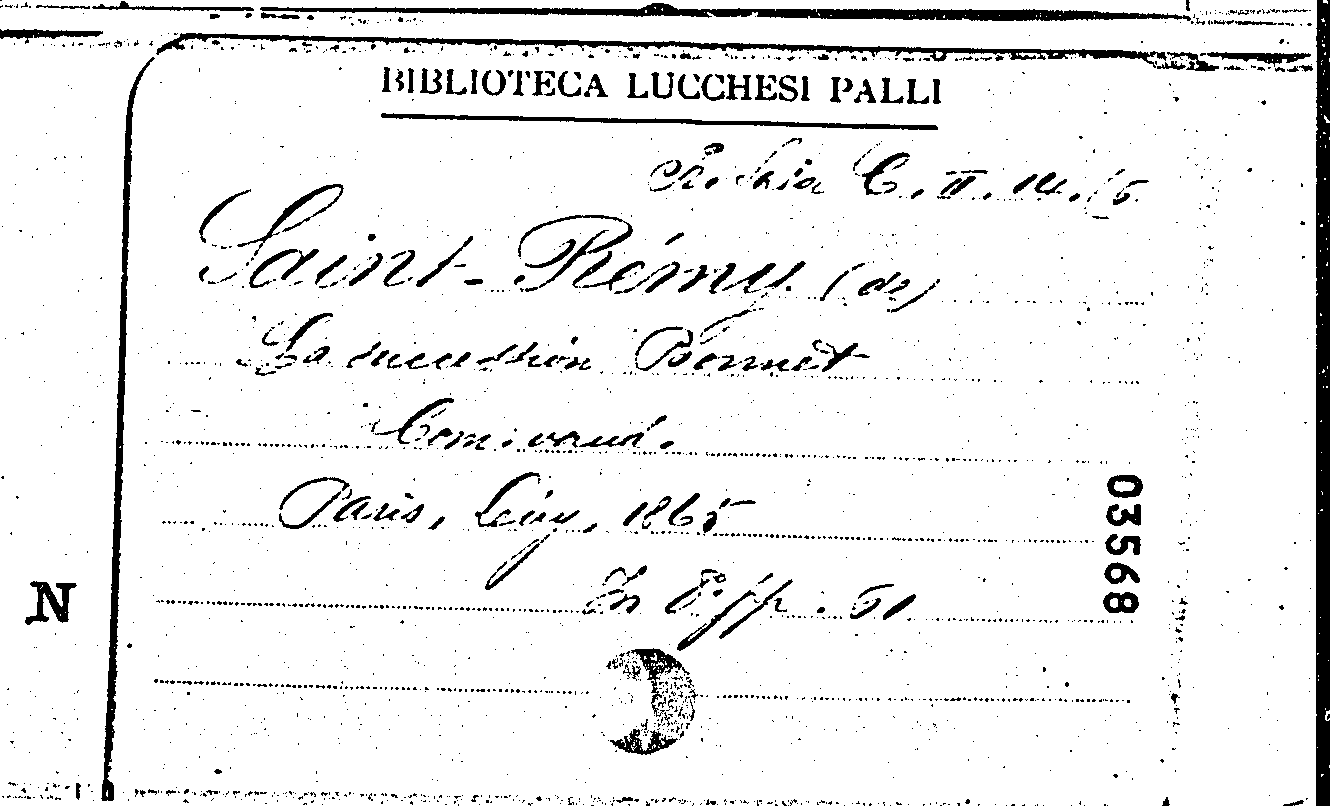 BIBLIOTECA LUCCHESI PALLI
C. II. 14. 15
Saint-Rémy (de)
La succession Bonnet
Com: vaud.
Paris, Lévy, 1865
In 8º pp. 51
03568
N